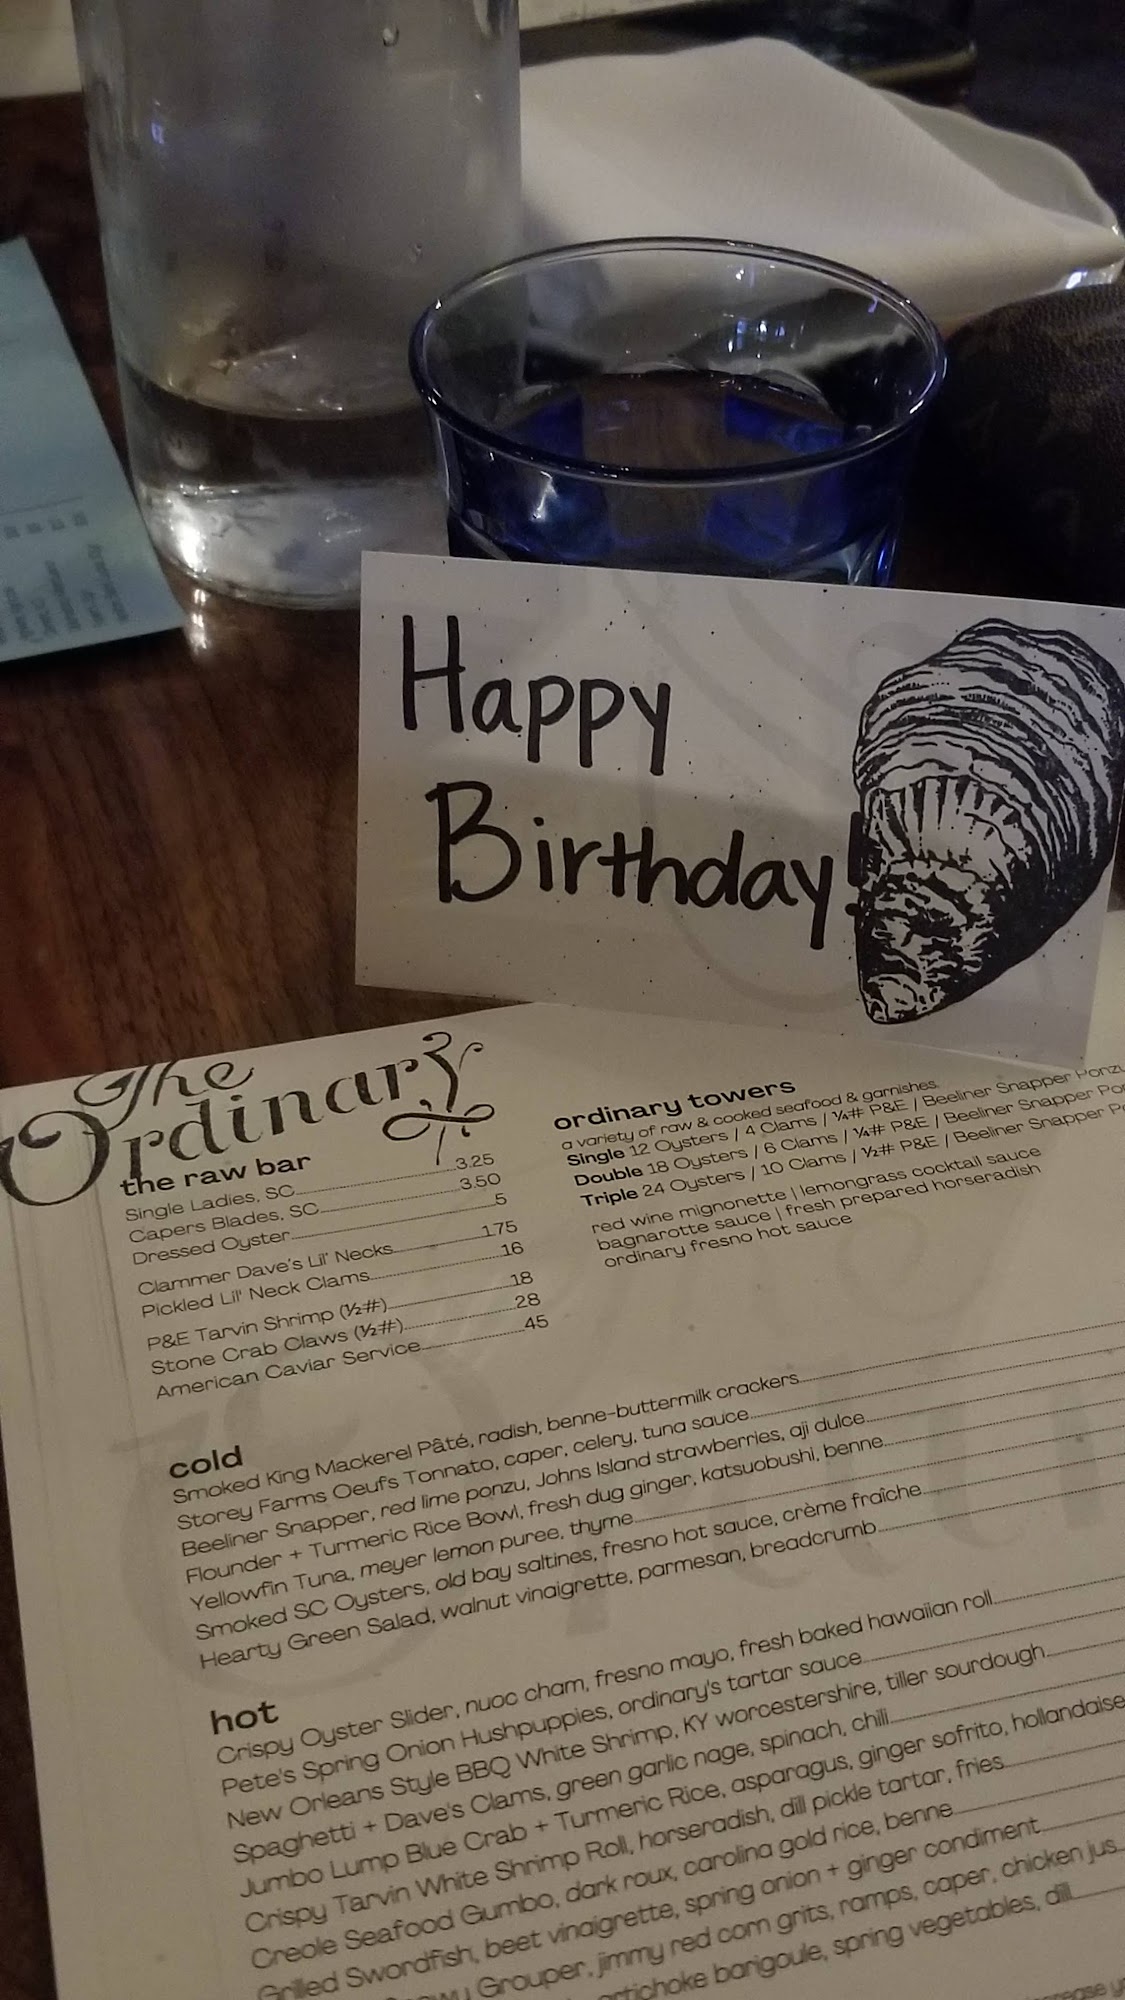 Happy
Birthday!
The
Ordinary
the raw bar
Single Ladies, SC 3.25
Capers Blades, SC 3.50
Dressed Oyster 5
Clammer Dave's Lil' Necks 1.75
Pickled Lil' Neck Clams 16
P&E Tarvin Shrimp (½#) 18
Stone Crab Claws (½#) 28
American Caviar Service 45
ordinary towers
a variety of raw & cooked seafood & garnishes.
Single 12 Oysters / 4 Clams / ¼# P&E / Beeliner Snapper Ponzu
Double 18 Oysters / 6 Clams / ¼# P&E / Beeliner Snapper
Triple 24 Oysters / 10 Clams / ½# P&E / Beeliner Snapper
red wine mignonette | lemongrass cocktail sauce
bagnarotte sauce | fresh prepared horseradish
ordinary fresno hot sauce
cold
Smoked King Mackerel Pâté, radish, benne-buttermilk crackers
Storey Farms Oeufs Tonnato, caper, celery, tuna sauce
Beeliner Snapper, red lime ponzu, Johns Island strawberries, aji dulce
Flounder + Turmeric Rice Bowl, fresh dug ginger, katsuobushi, benne
Yellowfin Tuna, meyer lemon puree, thyme
Smoked SC Oysters, old bay saltines, fresno hot sauce, crème fraîche
Hearty Green Salad, walnut vinaigrette, parmesan, breadcrumb
hot
Crispy Oyster Slider, nuoc cham, fresno mayo, fresh baked hawaiian roll
Pete's Spring Onion Hushpuppies, ordinary's tartar sauce
New Orleans Style BBQ White Shrimp, KY worcestershire, tiller sourdough
Spaghetti + Dave's Clams, green garlic nage, spinach, chili
Jumbo Lump Blue Crab + Turmeric Rice, asparagus, ginger sofrito, hollandaise
Crispy Tarvin White Shrimp Roll, horseradish, dill pickle tartar, fries
Creole Seafood Gumbo, dark roux, carolina gold rice, benne
Grilled Swordfish, beet vinaigrette, spring onion + ginger condiment
Grouper, jimmy red corn grits, ramps, caper, chicken jus
artichoke barigoule, spring vegetables, dill